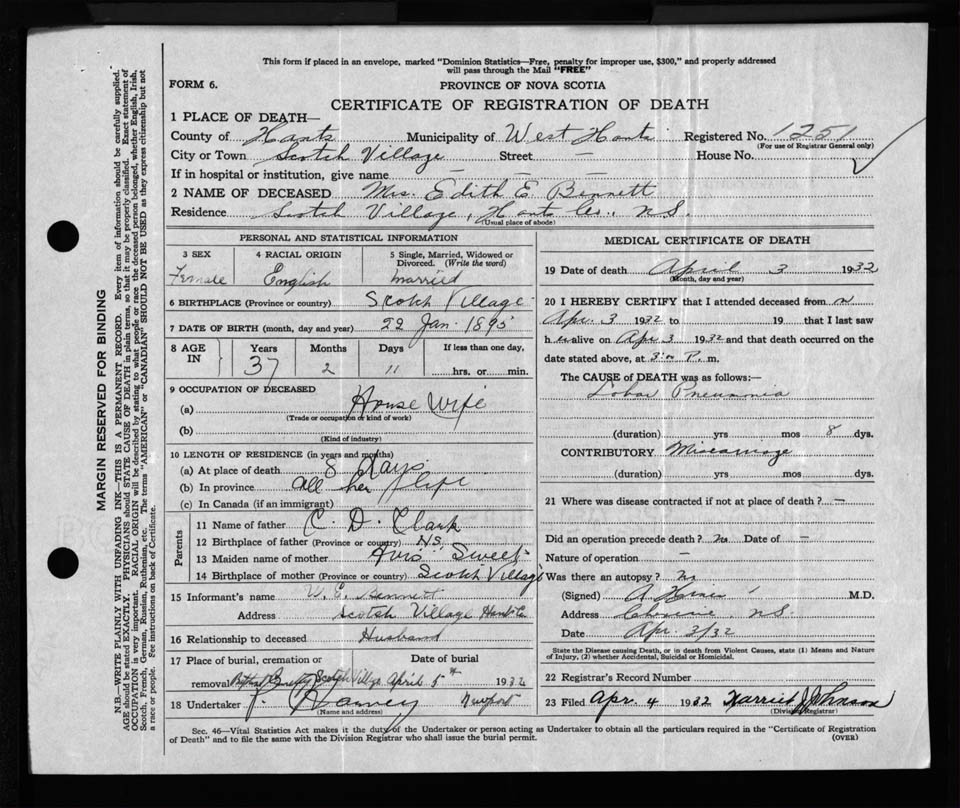 This form if placed in an envelope, marked "Dominion Statistics—Free, penalty for improper use, $300," and properly addressed
will pass through the Mail "FREE"
FORM 6.
PROVINCE OF NOVA SCOTIA
CERTIFICATE OF REGISTRATION OF DEATH
1 PLACE OF DEATH—
County of Hants Municipality of West Hants Registered No. 1251
(For use of Registrar General only)
City or Town Scotch Village Street — House No.
If in hospital or institution, give name —
2 NAME OF DECEASED Mrs. Edith E Bennett
Residence Scotch Village, Hants Co., N.S.
(Usual place of abode)
PERSONAL AND STATISTICAL INFORMATION
3 SEX Female
4 RACIAL ORIGIN English
5 Single, Married, Widowed or Divorced. (Write the word) married
6 BIRTHPLACE (Province or country) Scotch Village
7 DATE OF BIRTH (month, day and year) 22 Jan. 1895
8 AGE IN Years 37 Months 2 Days 11 If less than one day, hrs. or min.
9 OCCUPATION OF DECEASED
(a) House Wife
(Trade or occupation or kind of work)
(b)
(Kind of industry)
10 LENGTH OF RESIDENCE (in years and months)
(a) At place of death 8 days
(b) In province all her life
(c) In Canada (if an immigrant)
Parents
11 Name of father C. D. Clark
12 Birthplace of father (Province or country) N.S.
13 Maiden name of mother Avis Sweet
14 Birthplace of mother (Province or country) Scotch Village
15 Informant's name W. E. Bennett
Address Scotch Village Hants Co.
16 Relationship to deceased Husband
17 Place of burial, cremation or removal Scotch Village Date of burial April 5th 1932
18 Undertaker Newport
(Name and address)
MEDICAL CERTIFICATE OF DEATH
19 Date of death April 3 1932
(Month, day and year)
20 I HEREBY CERTIFY that I attended deceased from
Apr. 3 1932 to 19 that I last saw
h er alive on Apr 3 1932 and that death occurred on the
date stated above, at P. m.
The CAUSE of DEATH was as follows:—
Lobar Pneumonia
(duration) yrs mos 8 dys.
CONTRIBUTORY Miscarriage
(duration) yrs mos dys.
21 Where was disease contracted if not at place of death? —
Did an operation precede death? no Date of —
Nature of operation —
Was there an autopsy? no
(Signed) A. M.D.
Address N.S.
Date Apr. 3/32
State the Disease causing Death, or in death from Violent Causes, state (1) Means and Nature
of Injury, (2) whether Accidental, Suicidal or Homicidal.
22 Registrar's Record Number
23 Filed Apr. 4 1932 Harriet J Johnson
(Division Registrar)
Sec. 46—Vital Statistics Act makes it the duty of the Undertaker or person acting as Undertaker to obtain all the particulars required in the "Certificate of Registration
of Death" and to file the same with the Division Registrar who shall issue the burial permit.
(OVER)
MARGIN RESERVED FOR BINDING
N.B.—WRITE PLAINLY WITH UNFADING INK—THIS IS A PERMANENT RECORD. Every item of information should be carefully supplied.
AGE should be stated EXACTLY. PHYSICIANS should STATE CAUSE OF DEATH in plain terms, so that it may be properly classified. Exact statement of
OCCUPATION is very important. RACIAL ORIGIN will be described by stating to what people or race the deceased person belonged, whether English, Irish,
Scotch, French, German, Russian, Ruthenian, etc. The terms "AMERICAN" or "CANADIAN" SHOULD NOT BE USED as they express citizenship but not
a race or people. See instructions on back of Certificate.